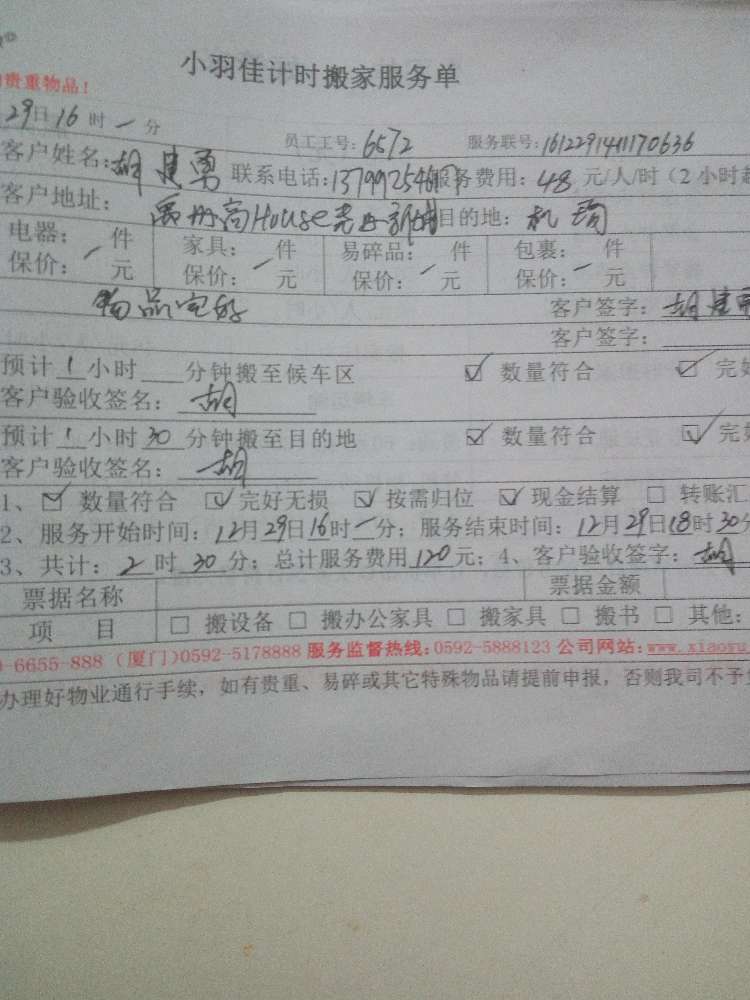 小羽佳计时搬家服务单
贵重物品!
29日16时一分
员工工号:6572 服务联号:1612291411170636
客户姓名:胡建勇 联系电话:1379925 服务费用:48元/人/时(2小时
客户地址: House 目的地:机
电器: 件 家具: 件 易碎品: 件 包裹: 件
保价:一元 保价:一元 保价:一元 保价:一元
物品完好 客户签字:胡建勇
客户签字:
预计1小时 分钟搬至候车区 ☑ 数量符合 ☑ 完好
客户验收签名:胡
预计1小时30分钟搬至目的地 ☑ 数量符合 ☑ 完好
客户验收签名:胡
1、☑ 数量符合 ☑ 完好无损 ☑ 按需归位 ☑ 现金结算 □ 转账汇
2、服务开始时间:12月29日16时一分;服务结束时间:12月29日18时30分
3、共计:2时30分;总计服务费用120元;4、客户验收签字:胡
票据名称 票据金额
项 目 □ 搬设备 □ 搬办公家具 □ 搬家具 □ 搬书 □ 其他:
-6655-888 (厦门)0592-5178888 服务监督热线:0592-5888123 公司网站:www.xiaoyu
办理好物业通行手续,如有贵重、易碎或其它特殊物品请提前申报,否则我司不予